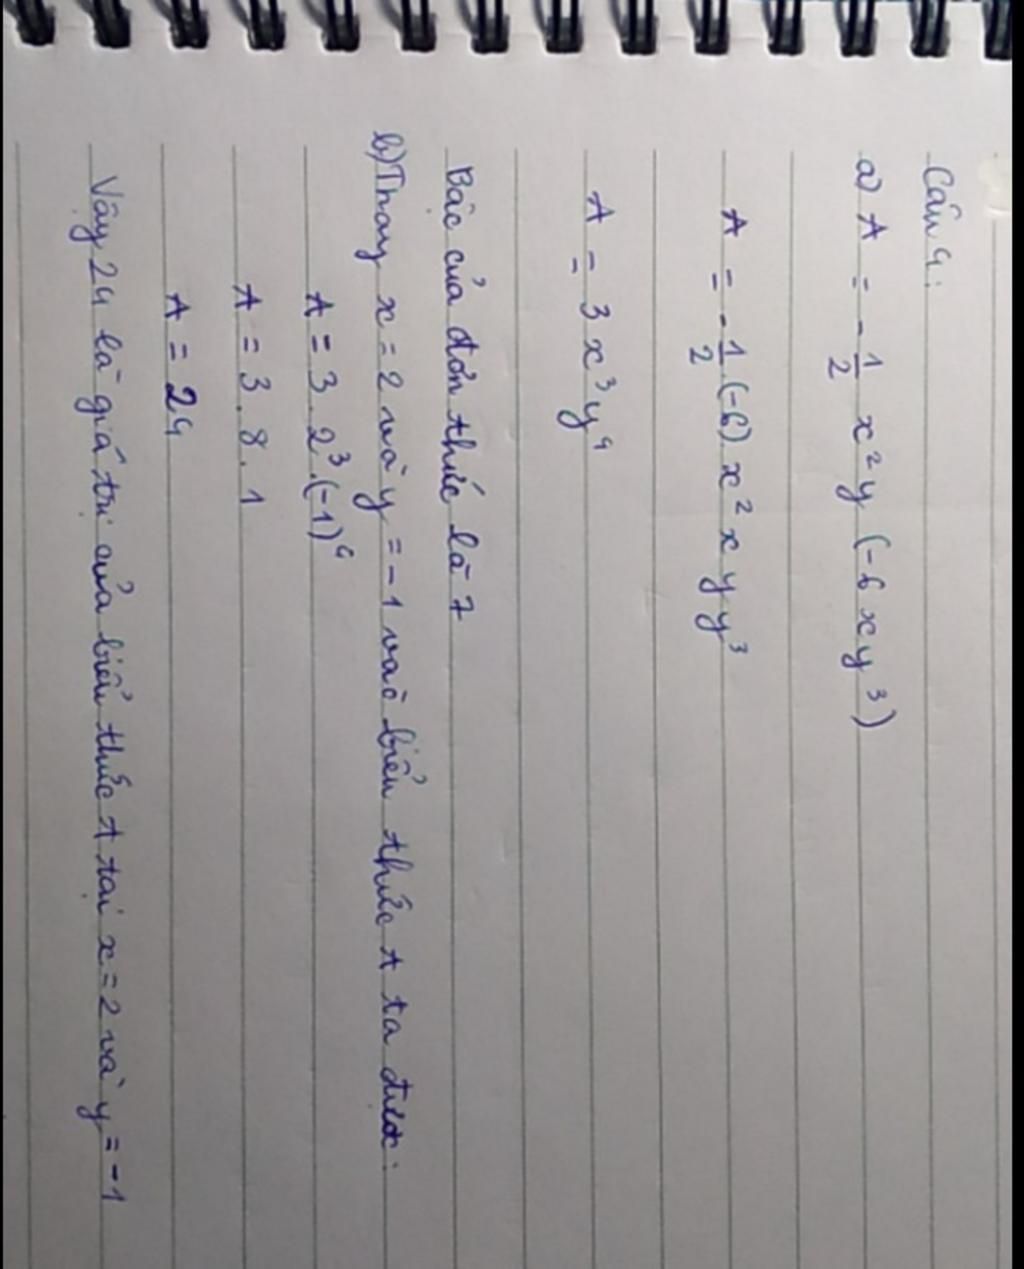 Câu 4:
a) A = - 1/2 x²y (-6xy³)
A = - 1/2 (-6) x² x y y³
A = 3x³y⁴
Bậc của đơn thức là 7
b) Thay x = 2 và y = -1 vào biểu thức A ta được:
A = 3 . 2³ . (-1)⁴
A = 3 . 8 . 1
A = 24
Vậy 24 là giá trị của biểu thức A tại x = 2 và y = -1